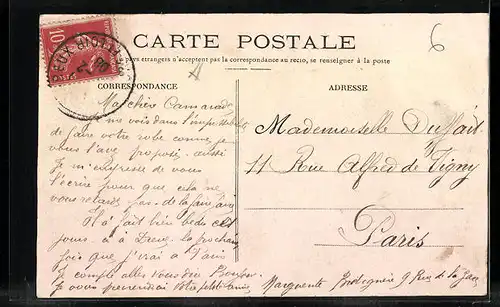 CARTE POSTALE
6
pays étrangers n'acceptent pas la correspondance au recto, se renseigner à la poste
CORRESPONDANCE
ADRESSE
10
Ma chère Camarade
je me vois dans l'impossibilité
de faire votre robe comme je
vous l'ave proposé, aussi
Je m'empresse de vous
l'écrire pour que cela ne
vous retarde pas de la faire faire
Il a fait bien beau ces
jours à la prochaine
fois que j'irai à Paris
Je compte aller vous dire Bonjour
Je vous
Mademoiselle
11 Rue Alfred de Vigny
Paris
Marguerite 9 Rue de la